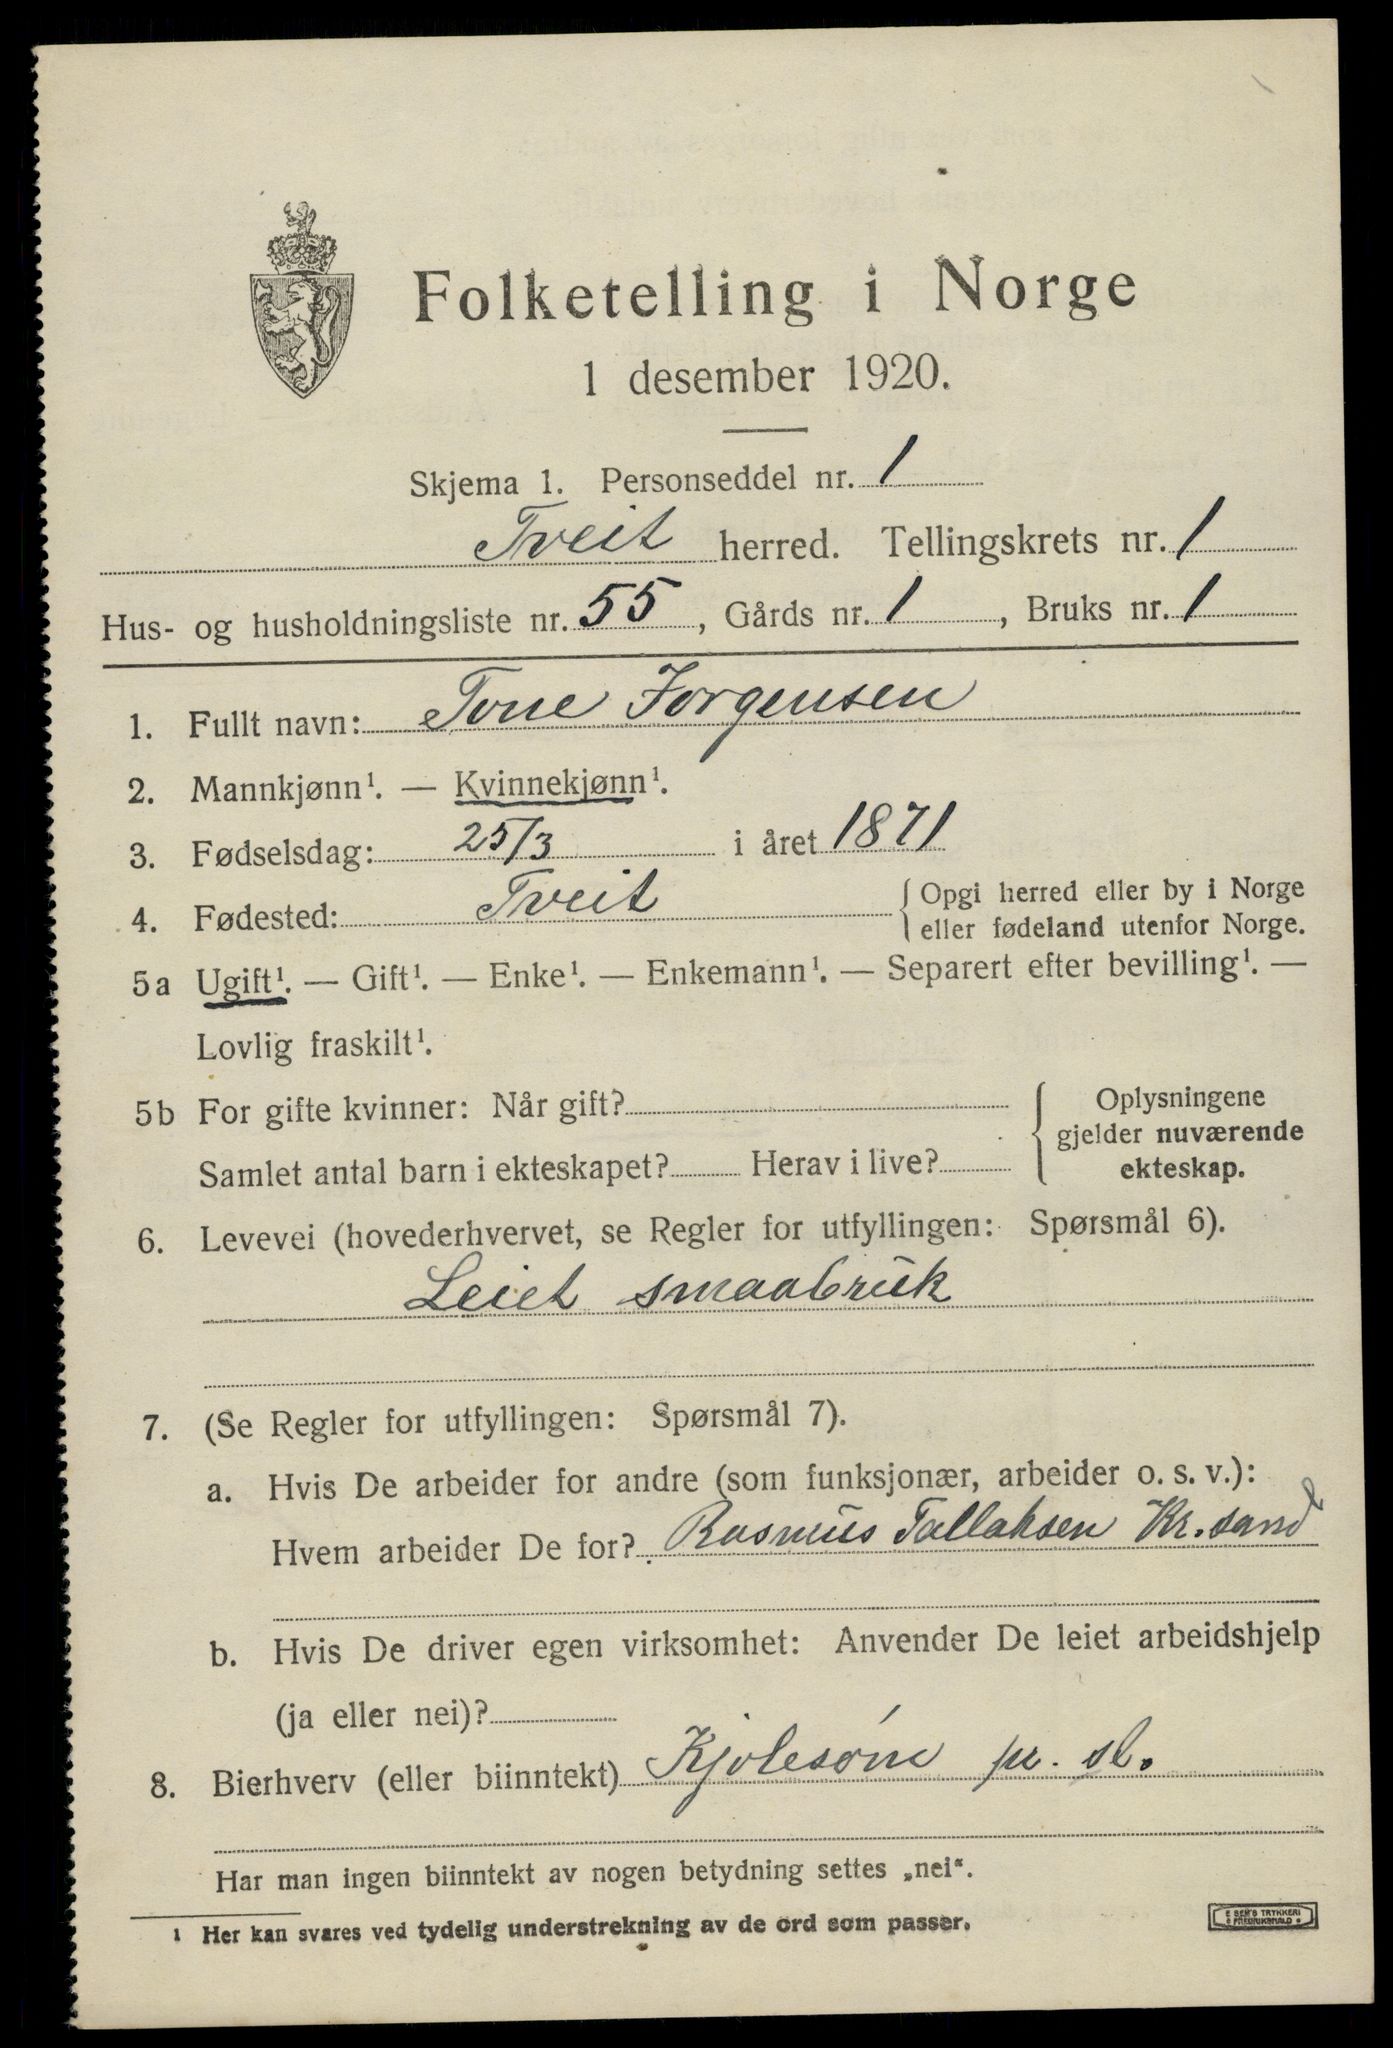 Folketelling i Norge
1 desember 1920.
Skjema 1. Personseddel nr. 1
Tveit herred. Tellingskrets nr. 1
Hus- og husholdningsliste nr. 55, Gårds nr. 1, Bruks nr. 1
1. Fullt navn: Tone Jorgensen
2. Mannkjønn¹. — Kvinnekjønn¹.
3. Fødselsdag: 25/3 i året 1871
4. Fødested: Tveit { Opgi herred eller by i Norge
eller fødeland utenfor Norge.
5a Ugift¹. — Gift¹. — Enke¹. — Enkemann¹. — Separert efter bevilling¹. —
Lovlig fraskilt¹.
5b For gifte kvinner: Når gift?
Samlet antal barn i ekteskapet? Herav i live?
Oplysningene
gjelder nuværende
ekteskap.
6. Levevei (hovederhvervet, se Regler for utfyllingen: Spørsmål 6).
Leiet smaabruk
7. (Se Regler for utfyllingen: Spørsmål 7).
a. Hvis De arbeider for andre (som funksjonær, arbeider o. s. v.):
Hvem arbeider De for? Rasmus Tallaksen Kr.sand
b. Hvis De driver egen virksomhet: Anvender De leiet arbeidshjelp
(ja eller nei)?
8. Bierhverv (eller biinntekt) Kjolesøm
Har man ingen biinntekt av nogen betydning settes „nei“.
1 Her kan svares ved tydelig understrekning av de ord som passer.